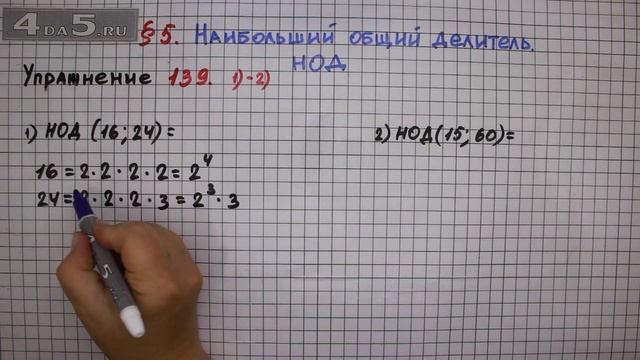 4DA5.RU
§5. Наибольший общий делитель.
НОД
Упражнение 139. 1)-2)
1) НОД (16; 24) =
16 = 2 · 2 · 2 · 2 = 2⁴
24 = 2 · 2 · 2 · 3 = 2³ · 3
2) НОД (15; 60) =